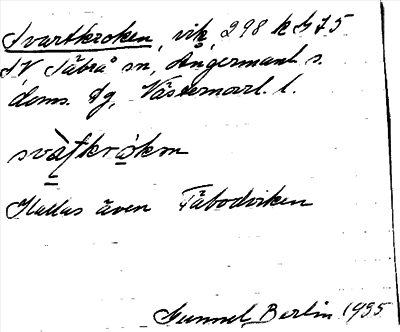 Svartkroken, vik, 298 h b 75
SV Säbrå sn, Ångermanl. s.
doms. tg, Västernorrl. l.
svàt̯krò̯kɷn
Kallas även Fäbodviken
Gunnel Berlin 1935